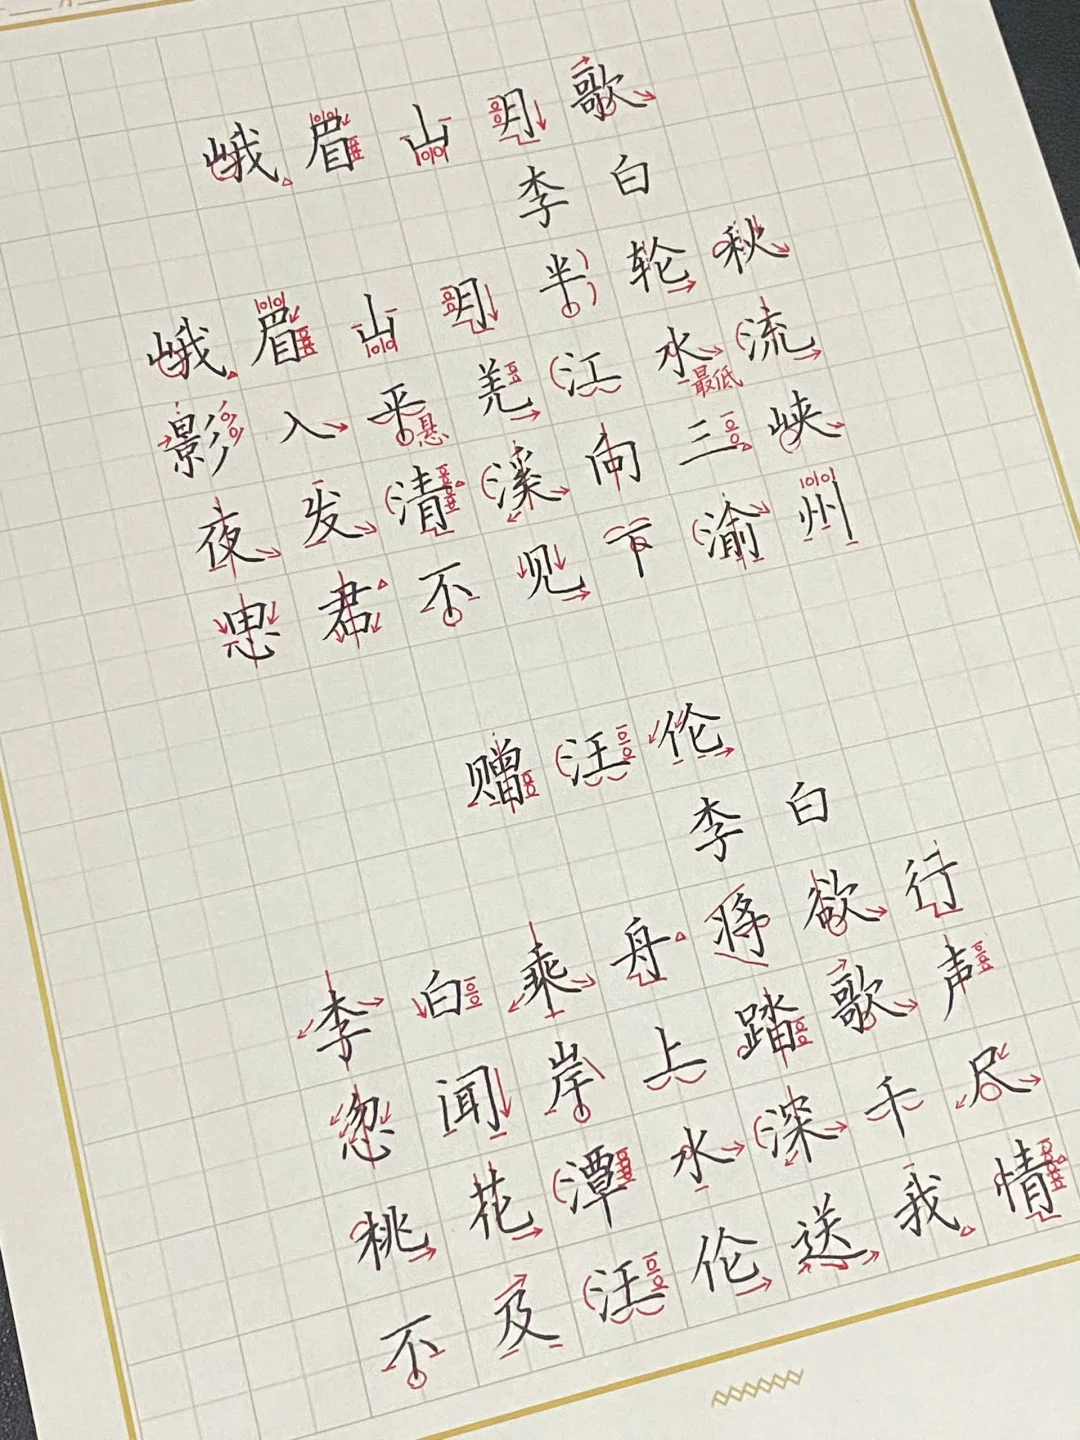 峨眉山月歌
李白
峨眉山月半轮秋
影入平羌江水流
悬
最低
夜发清溪向三峡
思君不见下渝州
赠汪伦
李白
李白乘舟将欲行
忽闻岸上踏歌声
桃花潭水深千尺
不及汪伦送我情